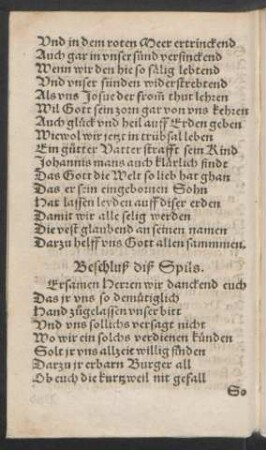 Vnd in dem roten Meer ertrinckend
Auch gar in vnser sünd versinckend
Wenn wir den hie so sälig lebtend
Vnd vnser sünden widerstrebtend
Als vns Josue der from̃ thut lehren
Wil Gott sein zorn gar von vns kehren
Auch glück vnd heil auff Erden geben
Wiewol wir jetzt in trübsal leben
Ein gütter Vatter strafft sein Kind
Johannis mans auch klärlich findt
Das Gott die Welt so lieb hat ghan
Das er sein eingebornen Sohn
Hat lassen leyden auff diser erden
Damit wir alle selig werden
Die vest glaubend an seinen namen
Darzu helff vns Gott allen sammmen.
Beschluß diß Spils.
Ersamen Herren wir danckend euch
Das jr vns so demütiglich
Hand zügelassen vnser bitt
Vnd vns sollichs versagt nicht
Wo wir ein solchs verdienen künden
Solt jr vns allzeit willig finden
Darzu jr erbarn Burger all
Ob euch die kurtzweil nit gefall
So